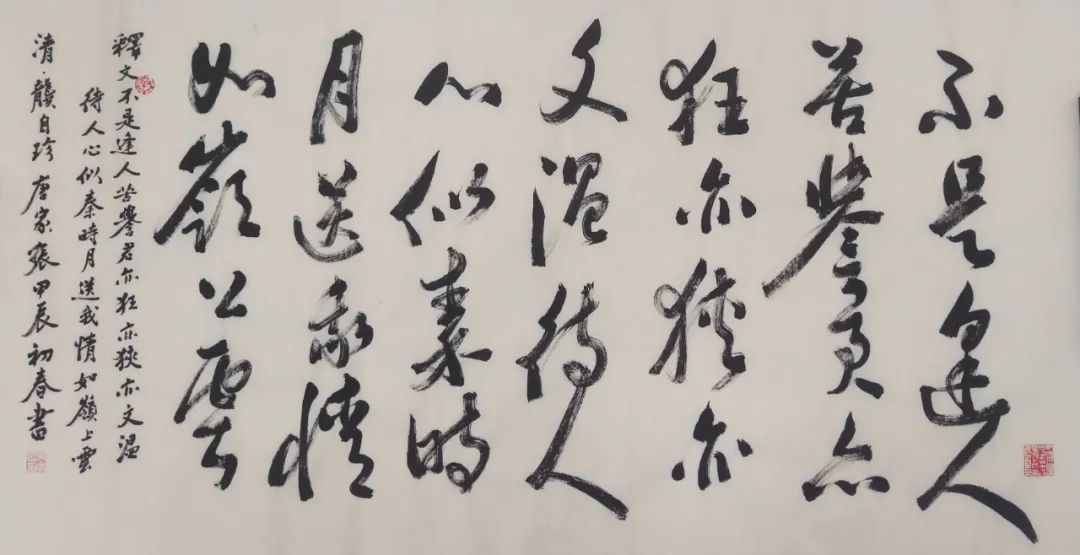 不是逢人
苦誉君亦
狂亦狹亦
文温待人
心似秦時
月送我情
如嶺上雲
釋文不是逢人苦譽君亦狂亦狹亦文温
待人心似秦時月送我情如嶺上雲
清·龔自珍 唐家 甲辰初春書